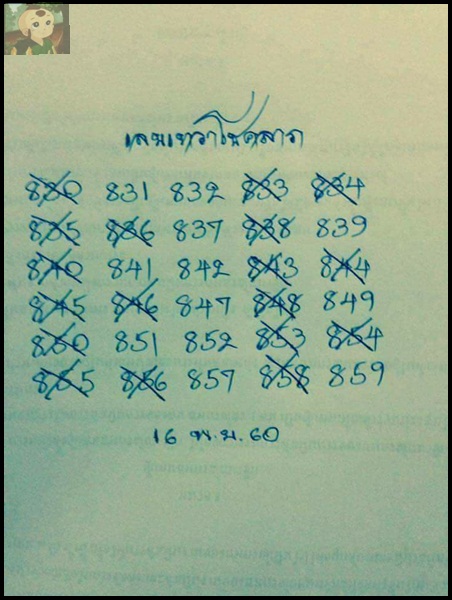 เลขเทวาโชคลาภ
830 831 832 833 834
835 836 837 838 839
840 841 842 843 844
845 846 847 848 849
850 851 852 853 854
855 856 857 858 859
16 พ.ย. 60